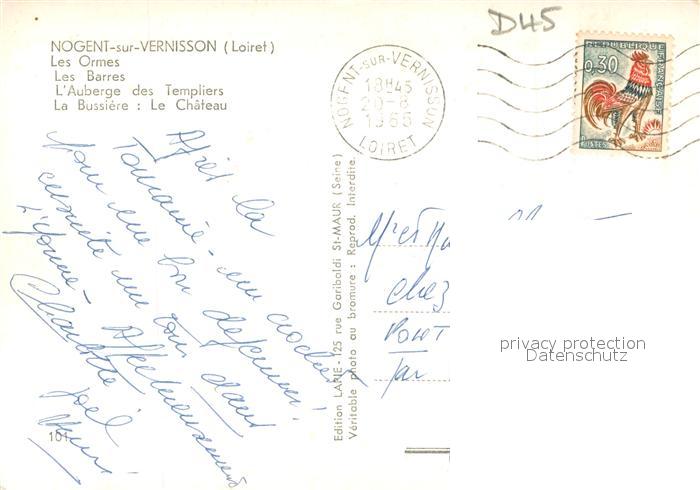 D45
NOGENT-sur-VERNISSON (Loiret)
Les Ormes
Les Barres
L'Auberge des Templiers
La Bussière : Le Château
NOGENT-SUR-VERNISSON
18H45
20-8
1965
LOIRET
REPUBLIQUE FRANÇAISE
0,30
POSTES
Après la
Touraine - un crochet
pour un bon déjeuner
ensuite un tour dans
l'Yonne - Affectueusement
Charlotte
Joël
101
Edition LAPIE - 125 rue Garibaldi St-MAUR (Seine)
Véritable photo au bromure : Reprod. Interdite.
chez
par
privacy protection
Datenschutz